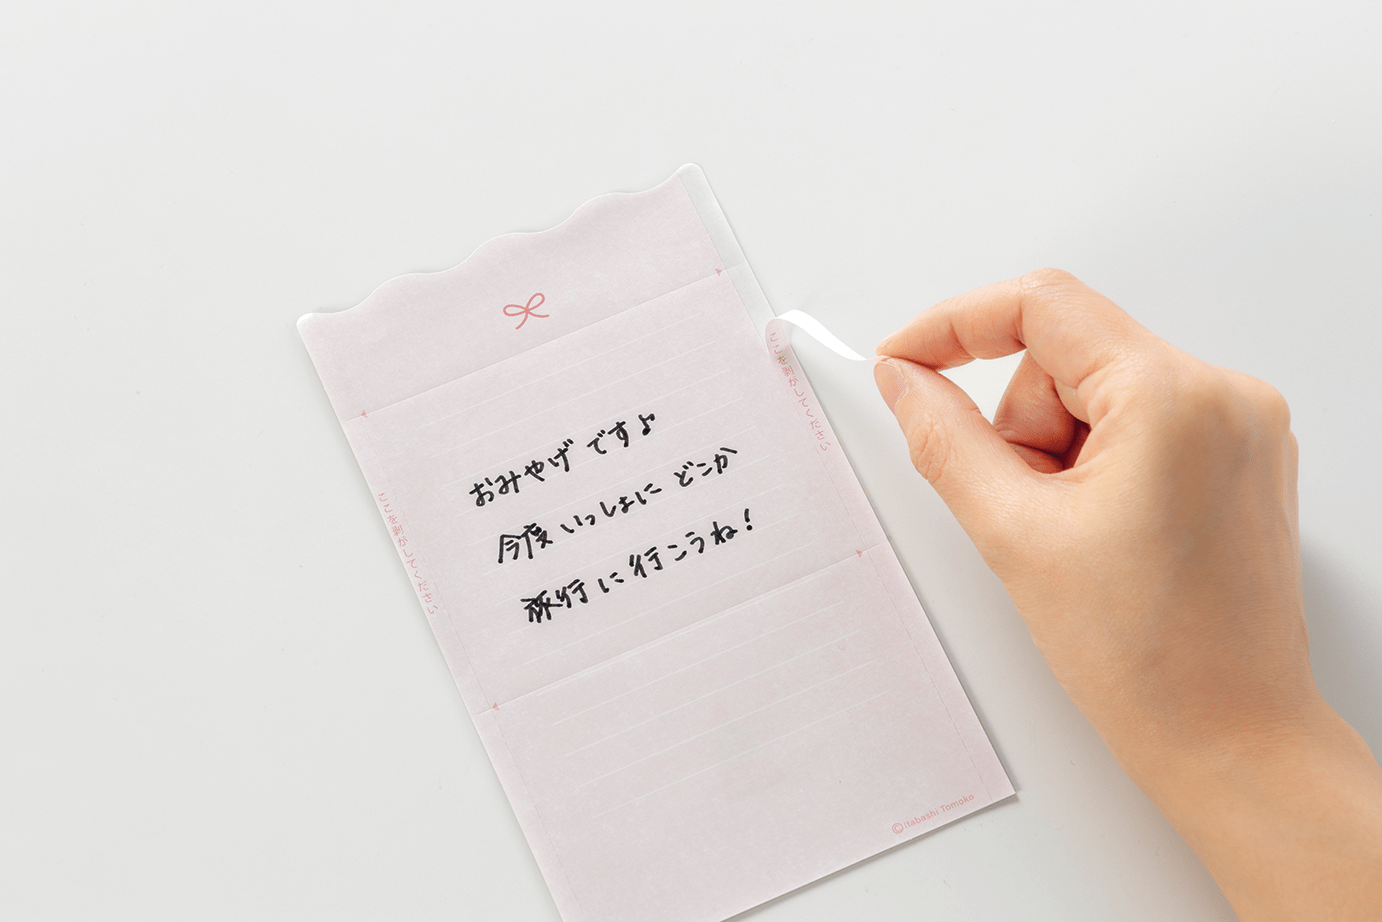 ここを剥がしてください
おみやげです♪
今度いっしょに どこか
旅行に行こうね!
ここを剥がしてください
©itabashi Tomoko